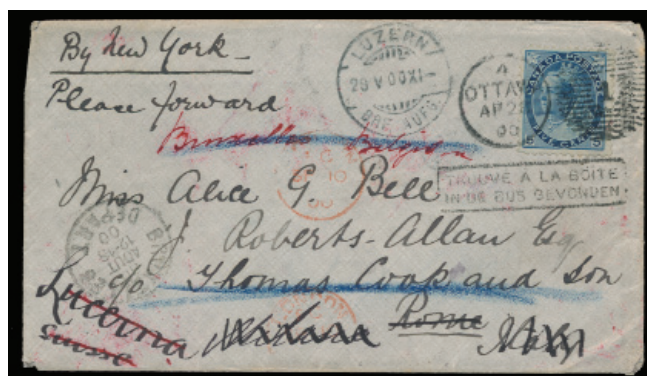 By New York
Please forward
LUZERN
29 V 00 XI-
BRF. AUFG.
4
OTTAWA
AP 2
00
CANADA POSTAGE
FIVE CENTS
5 5
1
Bruxelles Belgium
TROUVÉ A LA BOITE
IN DE BUS GEVONDEN
Miss Alice G Bell
J. Roberts-Allan Esq
c/o Thomas Cook and Son
DEPART
AOUT
00
LONDON
Lucerna
Suisse
Rome
Italy